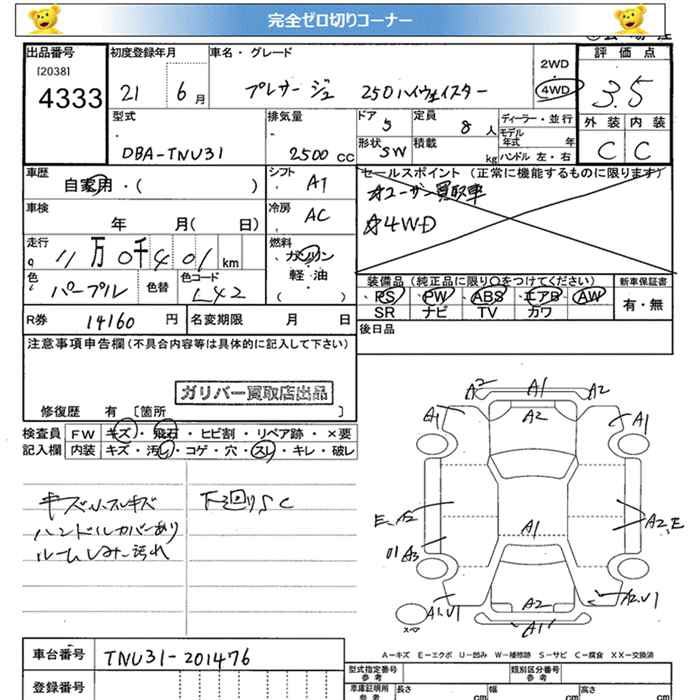 完全ゼロ切りコーナー
出品番号 初度登録年月 車名・グレード 2WD 4WD 評価点
[2038]
4333 21 6月 プレサージュ 250ハイウェイスター 3.5
型式 排気量 ドア 定員 ディーラー・並行 外装 内装
DBA-TNU31 2500cc 5 8人 モデル年式 年 C C
形状 SW 積載 kg ハンドル 左・右
車歴 自家用・( ) シフト AT セールスポイント(正常に機能するものに限ります)
☆ユーザー買取車
車検 年 月( 日) 冷房 AC ☆4WD
走行 11万0千401km 燃料 ガソリン
軽・油
( )
色 パープル 色替 色コード L42 装備品(純正品に限り○をつけてください) 新車保証書
PS PW ABS エアB AW 有・無
SR ナビ TV カワ
R券 14160円 名変期限 月 日 後日品
注意事項申告欄(不具合内容等は具体的に記入して下さい)
ガリバー買取店出品
修復歴 有 [箇所 ]
検査員 FW キズ・飛石・ヒビ割・リペア跡・×要
記入欄 内装 キズ・汚し・コゲ・穴・スレ・キレ・破レ
キズ小スレキズ 下廻りSC
ハンドルカバーあり
ルームしみ汚れ
A2 A1 A2
A1 A2 A1
E、A2 A1 A2、E
U1 A3
A1、U1 A2 A2、U1
A1
スペア
A=キズ E=エクボ U=凹み W=補修跡 S=サビ C=腐食 XX=交換済
車台番号 TNU31-201476
登録番号
型式指定番号 参考 類別区分番号 参考
車庫証明用 参考 長さ cm 幅 cm 高さ cm